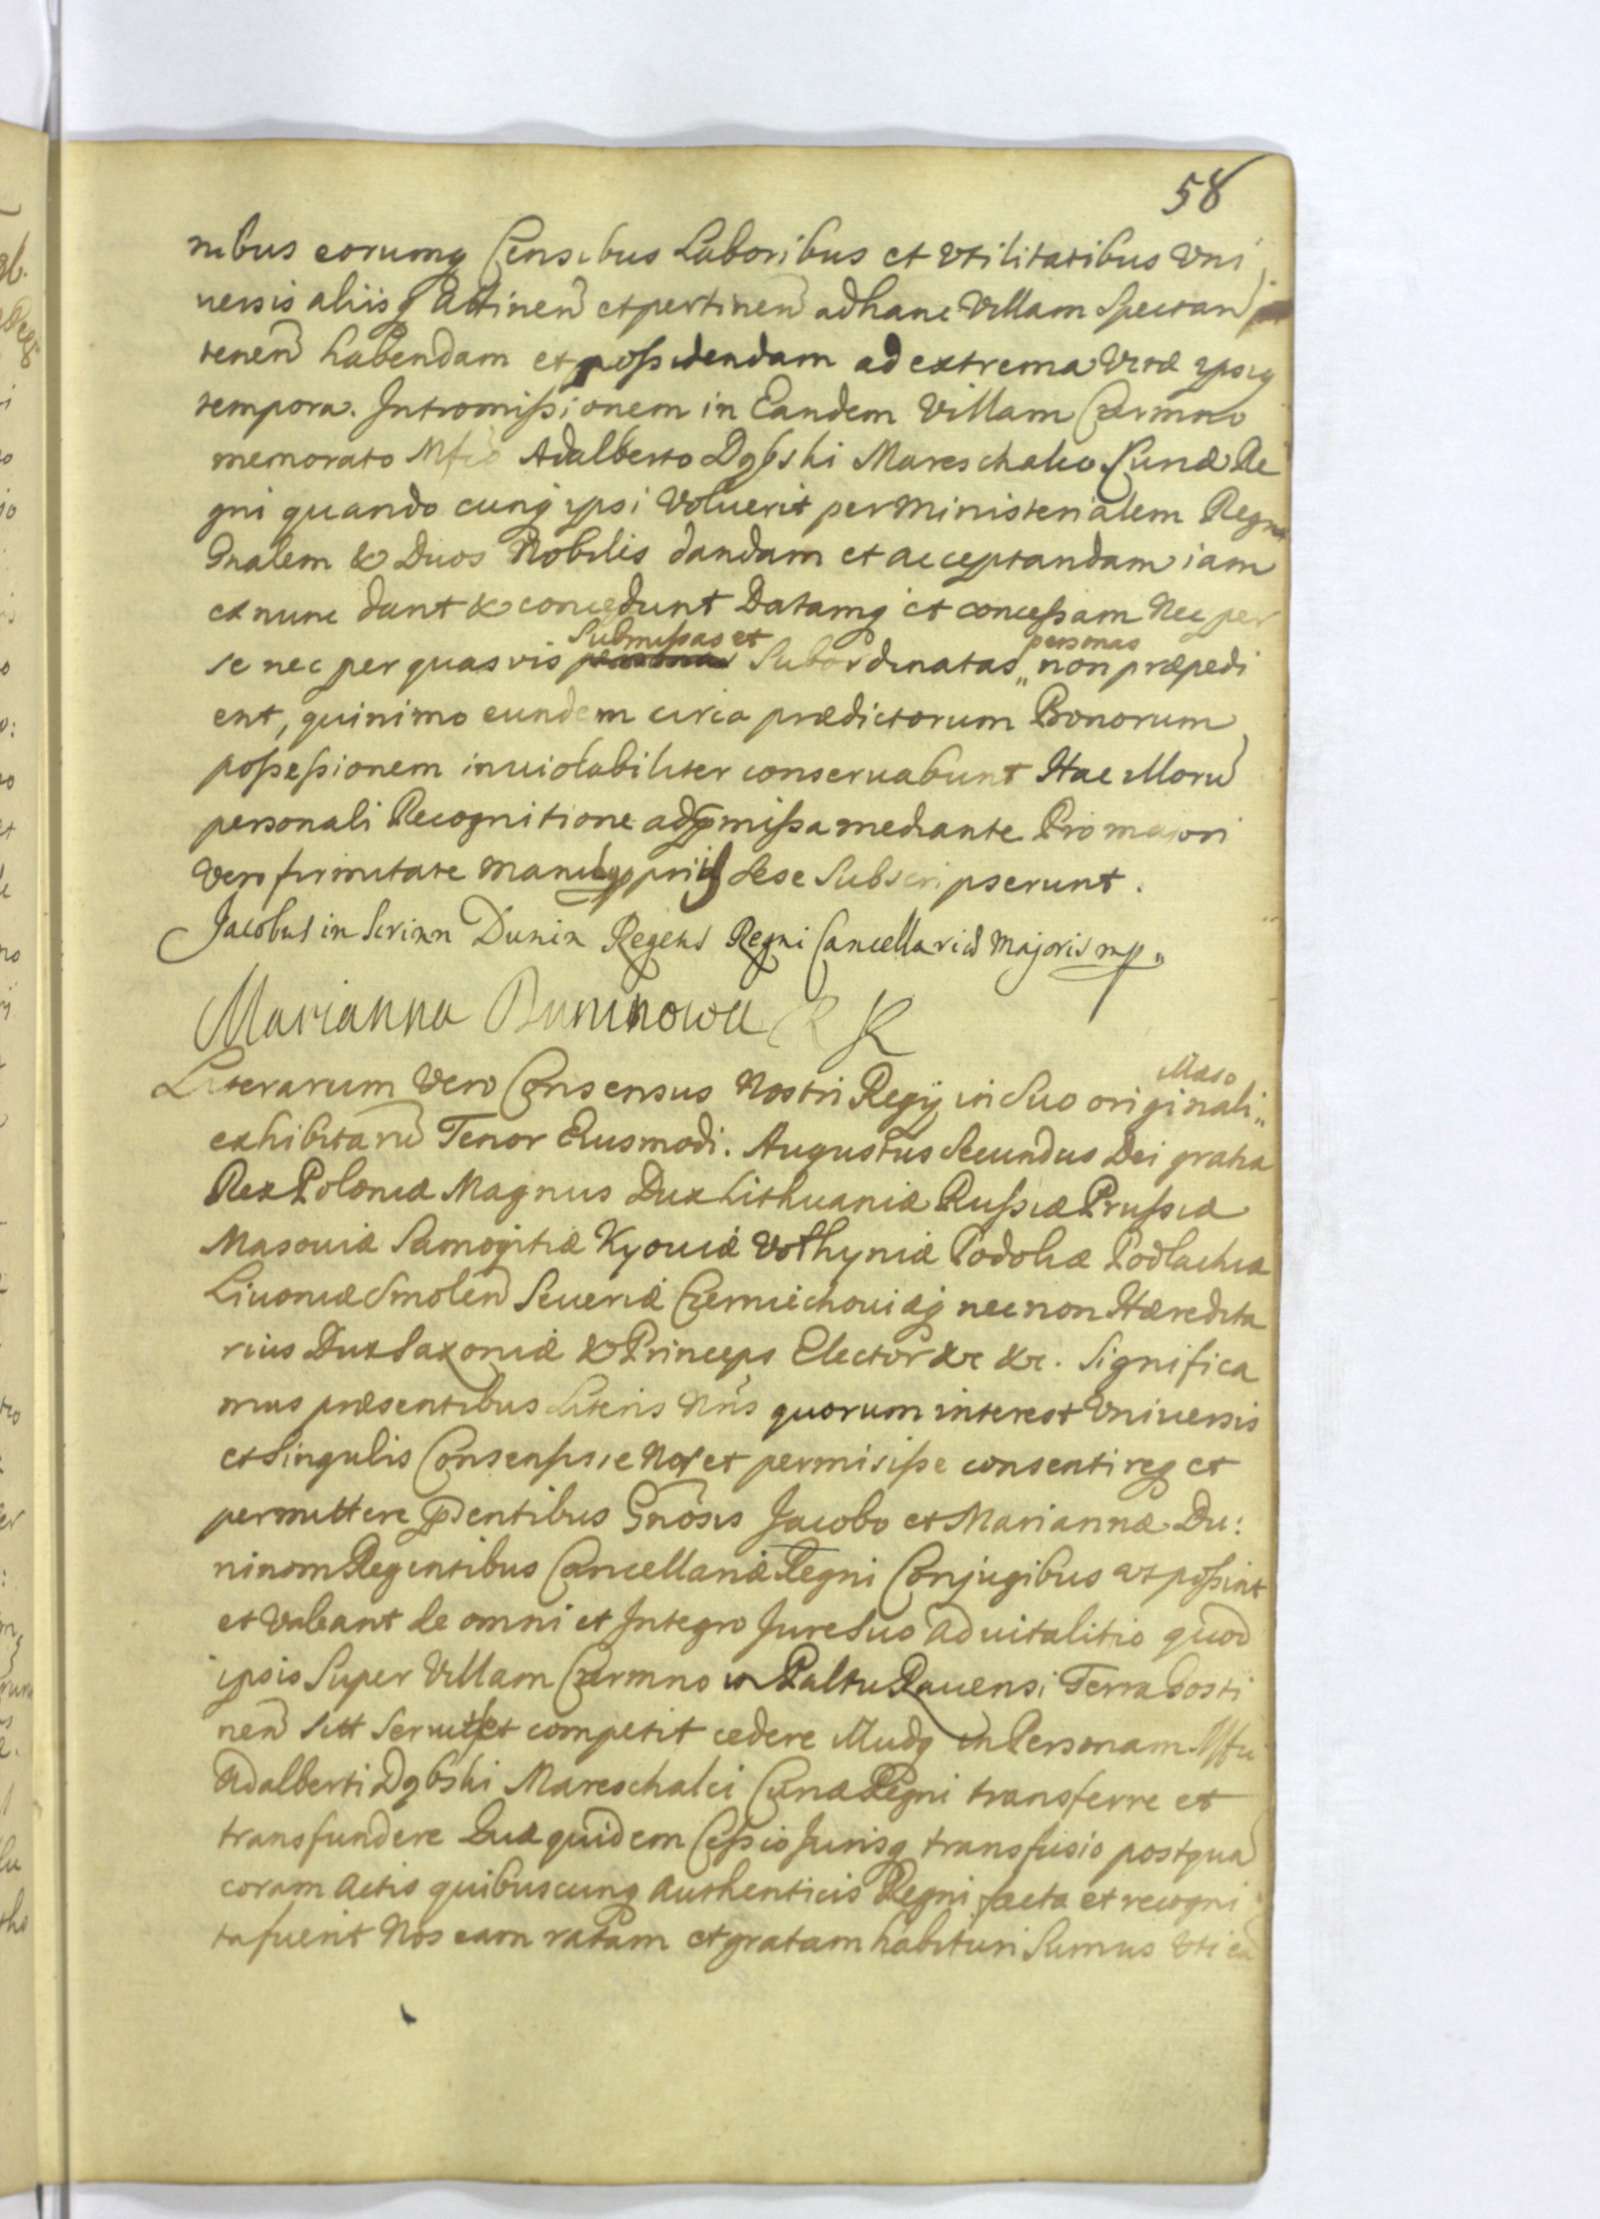 58
nibus eorumq Censibus Laboribus et Vtilitatibus Vni
uersis aliisq Attinen et pertinen ad hanc Villam Spectan
tenen habendam et possidendam ad extrema Vitæ ipsiq
tempora. Intromissionem in Eandem Villam Czermno
memorato Mfco Adalberto Dąbski Mareschalco Curiæ Re
gni quando cunq ipsi Voluerit per Ministerialem Regni
Gnalem & Duos Nobiles dandam et acceptandam iam
ex nunc dant & concedunt Datamq et concessam Nec per
Submissas et personas
se nec per quasvis Subordinatas „ non præpedi
ent, quinimo eundem circa prædictorum Bonorum
possessionem inuiolabiliter conseruabunt Hac illoru
personali Recognitione ad præmissa mediante Pro maiori
Vero firmitate Manibq pprijs sese Subscripserunt.
Jacobus in Scrinn Dunin Regens Regni Cancellariæ Majoris mp„
Marianna Duninowa R K
Literarum Vero Consensus Nostri Regij in Suo originali„
exhibitaru Tenor Eiusmodi. Augustus Secundus Dei gratia
Rex Poloniæ Magnus Dux Lithuaniæ Russiæ Prussiæ
Masouiæ Samogitiæ Kyouiæ Volhyniæ Podoliæ Podlachiæ
Liuoniæ Smolen Seueriæ Czerniechouiæq nec non Hæredita
rius Dux Saxoniæ & Princeps Elector &c &c. Significa
mus præsentibus Literis Nris quorum interest Vniuersis
et Singulis Consensisse Nos et permisisse consentireq et
permittere pntibus Gnosis Jacobo et Mariannæ Du:
ninom Regentibus Cancellariæ Regni Conjugibus vt possint
et Valeant de omni et Integro Jure Suo aduitalitio quod
ipsis Super Villam Czermno in Paltu Rauensi Terra Gosti
nen sitt Seruit et competit cedere illudq in Personam Mfci
Adalberti Dąbski Mareschalci Curiæ Regni transferre et
transfundere Quæ quidem Cessio Jurisq transfusio postqua
coram Actis quibuscunq Authenticis Regni facta et recogni
ta fuerit Nos eam ratam et gratam habituri Sumus Vti ea